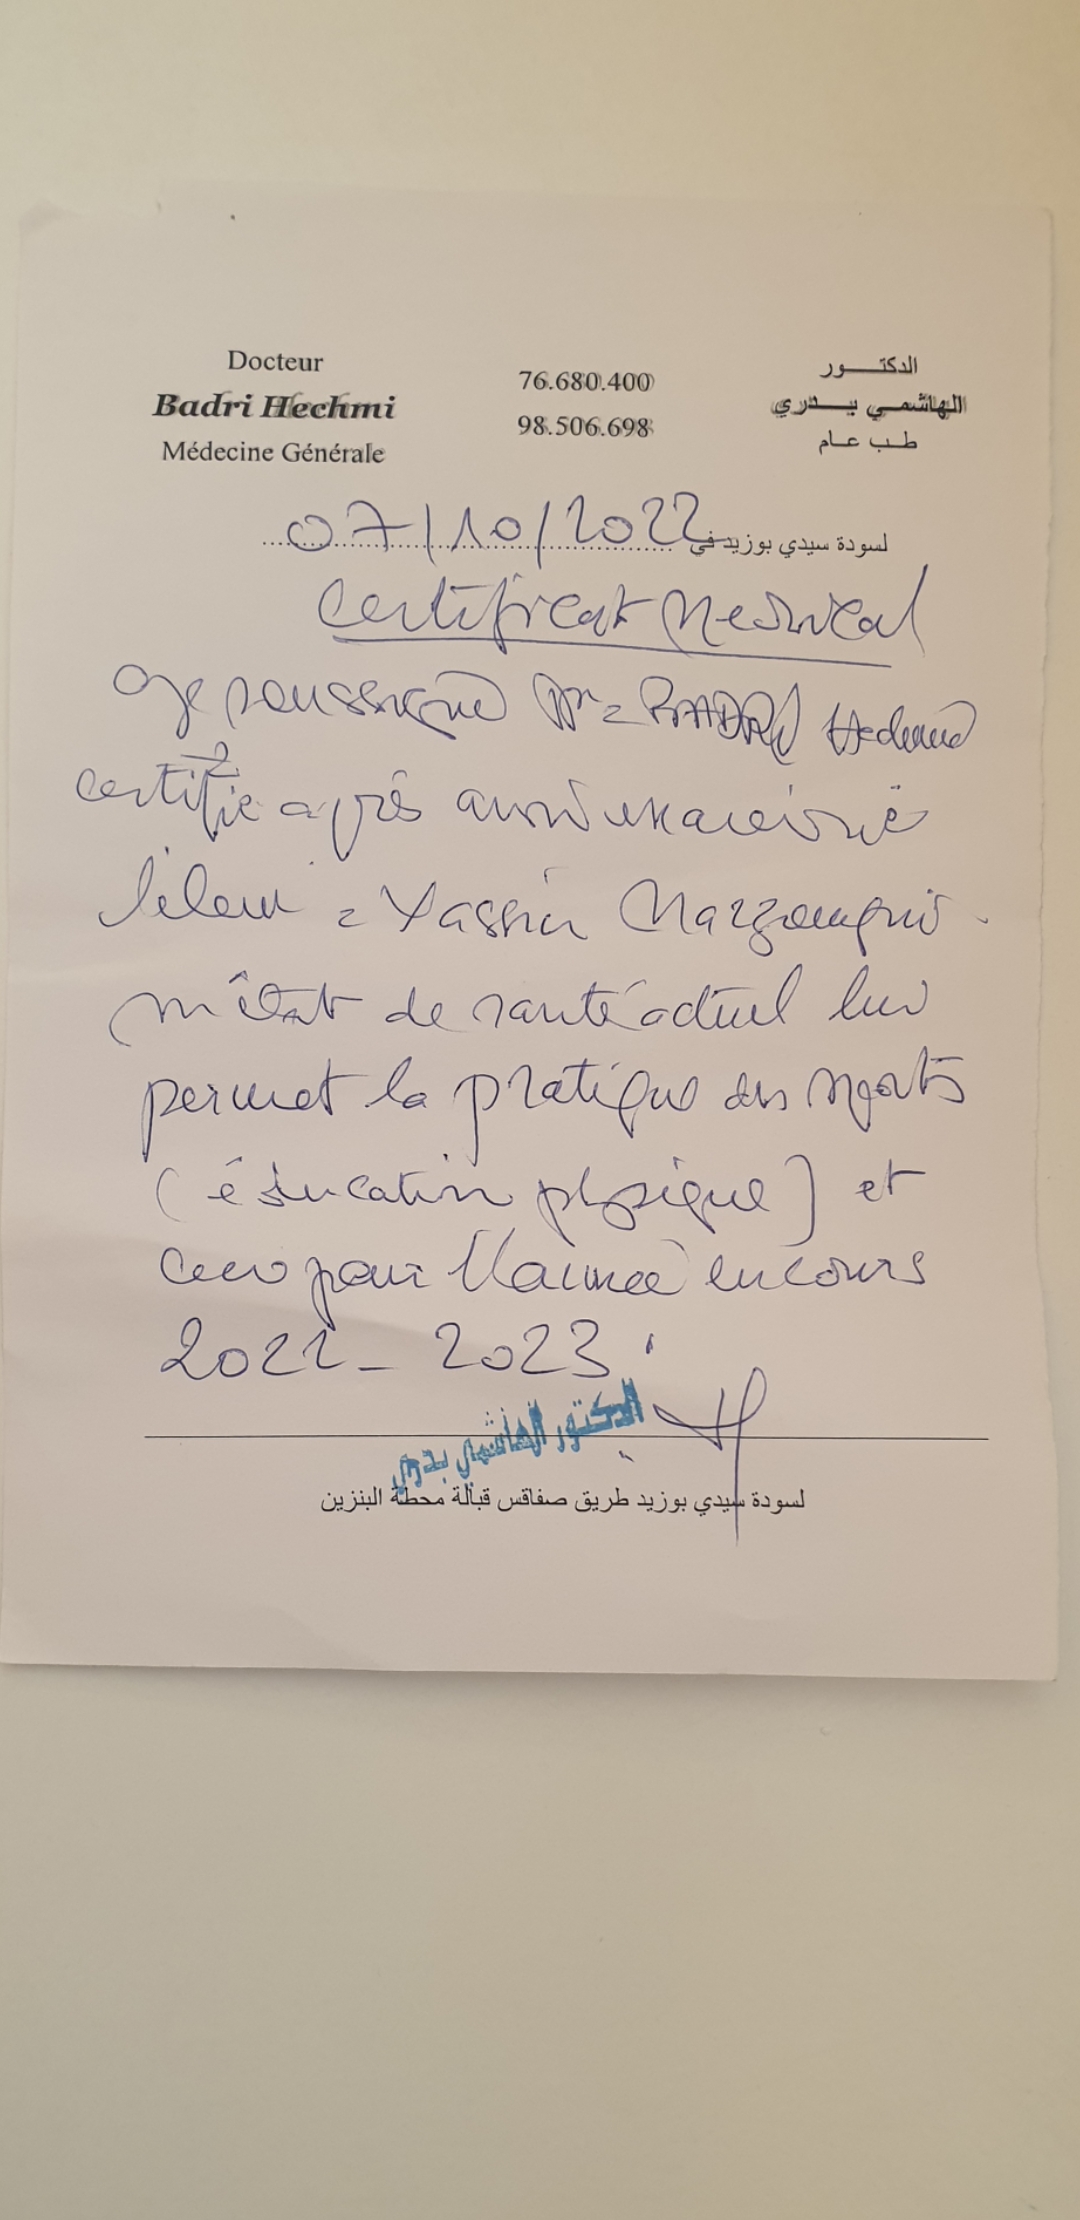 Docteur
Badri Hechmi
Médecine Générale
76.680.400
98.506.698
الدكتور
الهاشمي بدري
طب عام
لسودة سيدي بوزيد في 07/10/2022
Certificat Medical
Je soussigné Dr = BADRI Hechmi
certifie après avoir examiné
l'élève = Yassin Marzougui
état de santé actuel lui
permet la pratique des sports
(éducation physique) et
ceci pour l'année en cours
2022 - 2023.
الدكتور الهاشمي بدري
لسودة سيدي بوزيد طريق صفاقس قبالة محطة البنزين